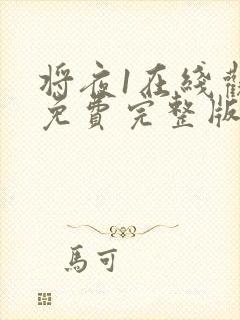 将夜1在綫觀
免費完整版
馬可